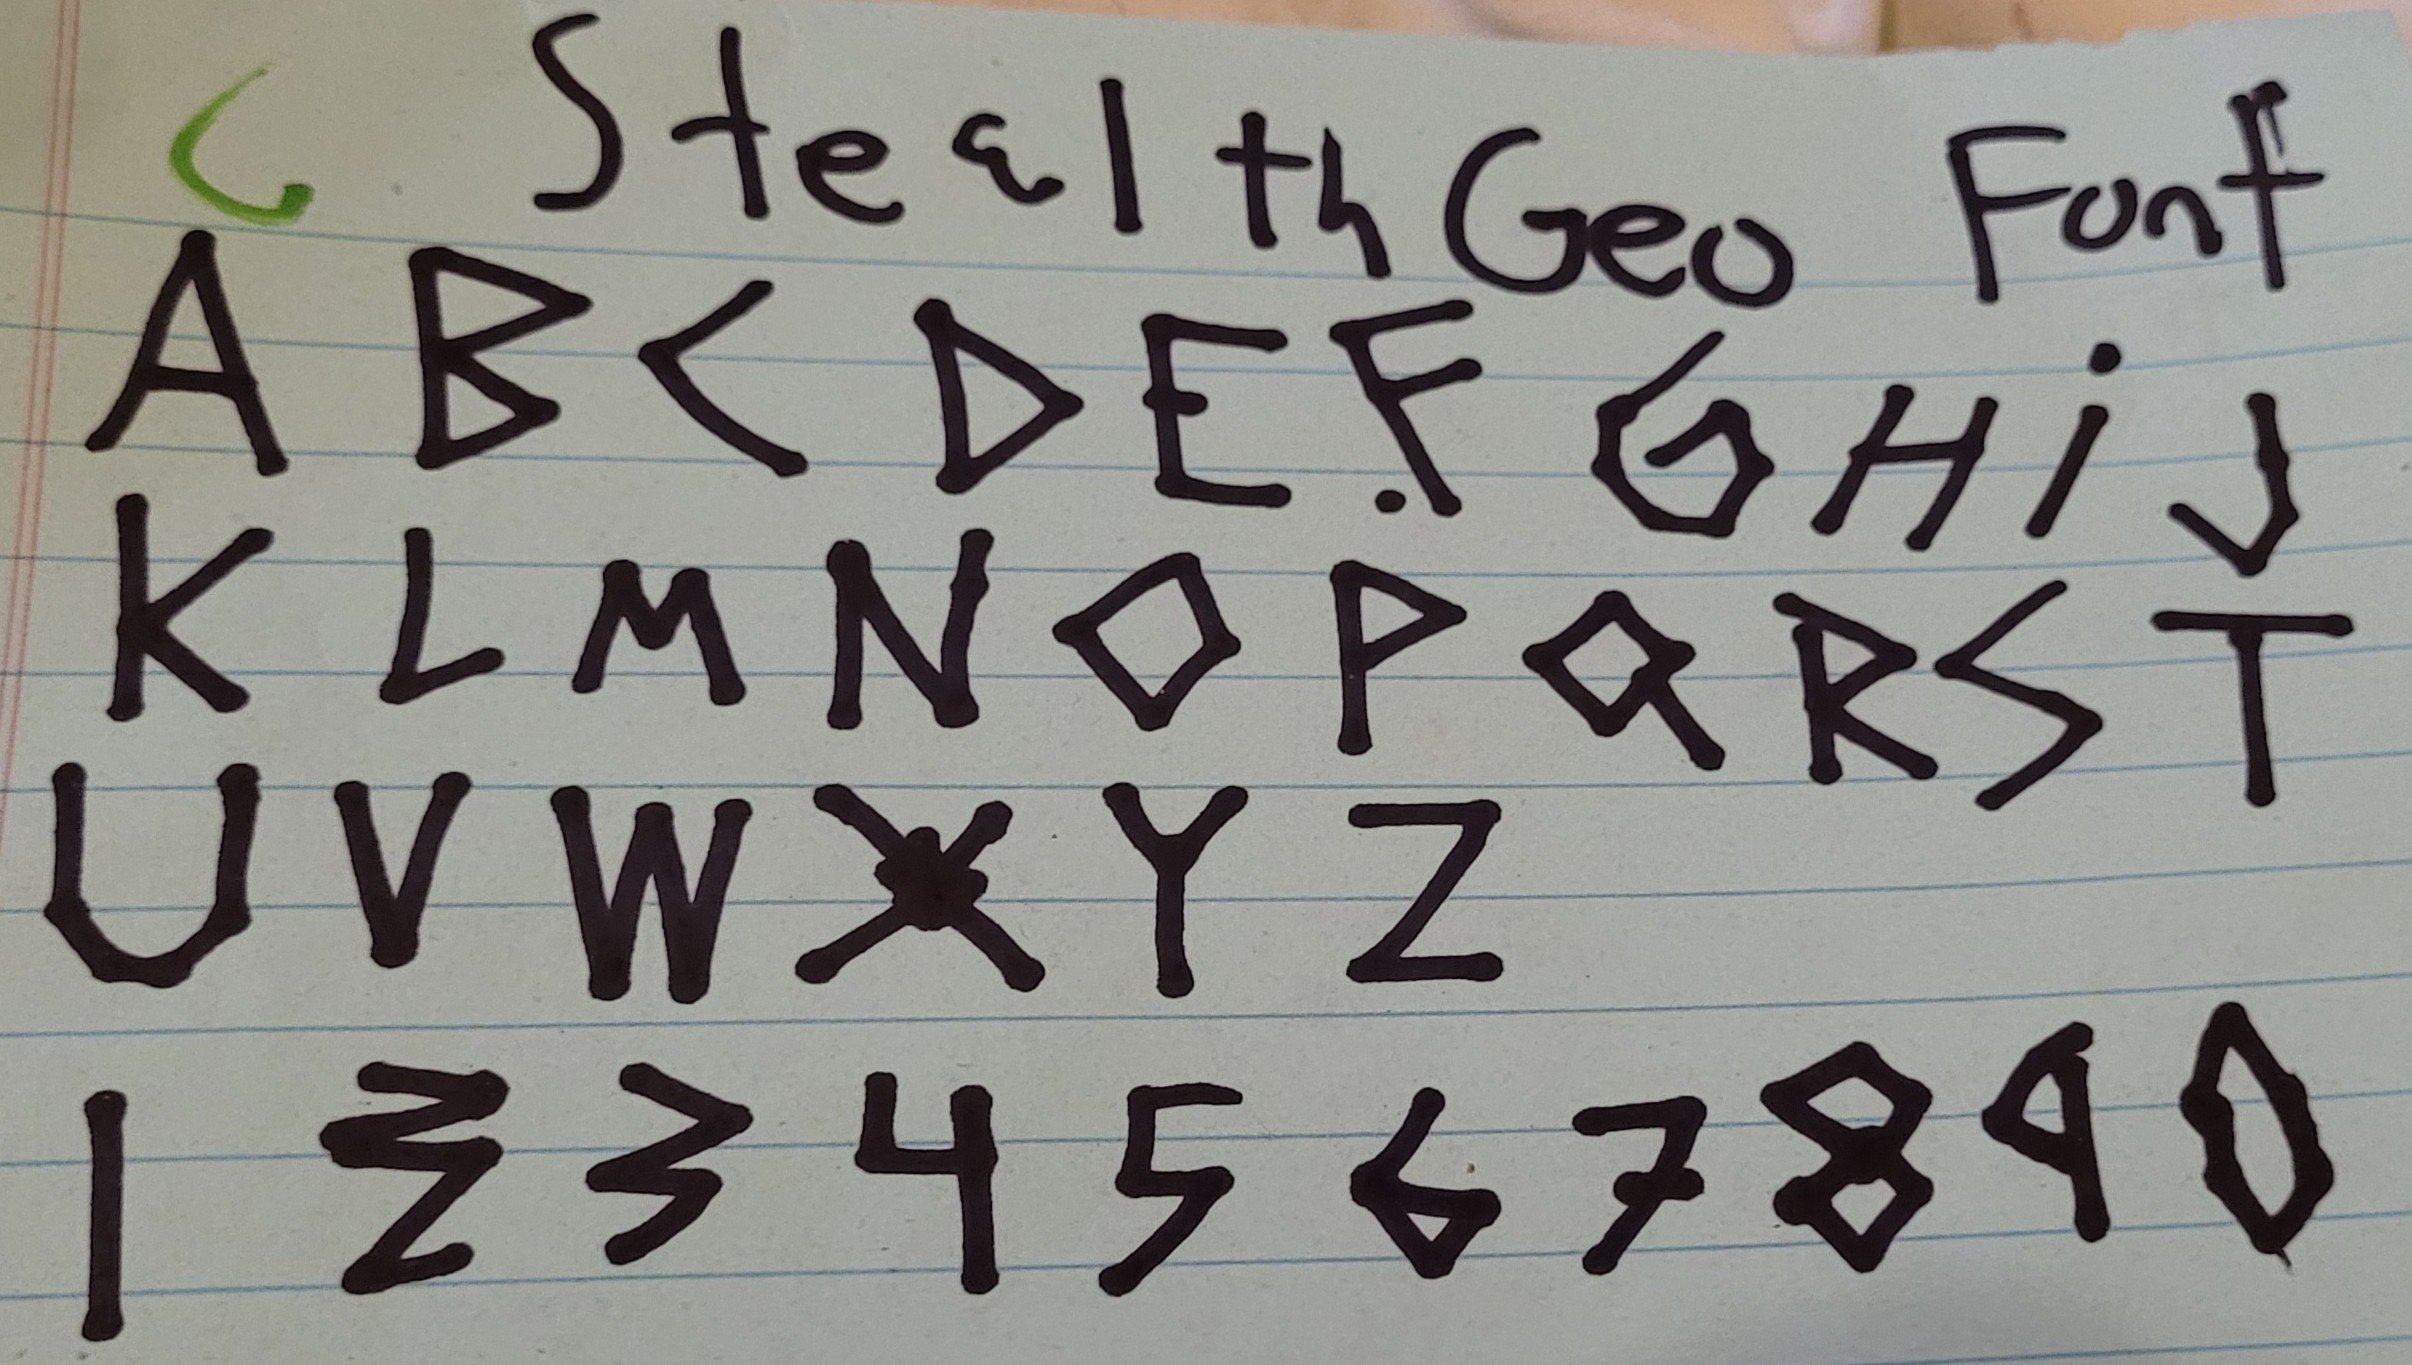 Stealth Geo Font
A B C D E F G H i J
K L M N O P Q R S T
U V W X Y Z
1 2 3 4 5 6 7 8 9 0